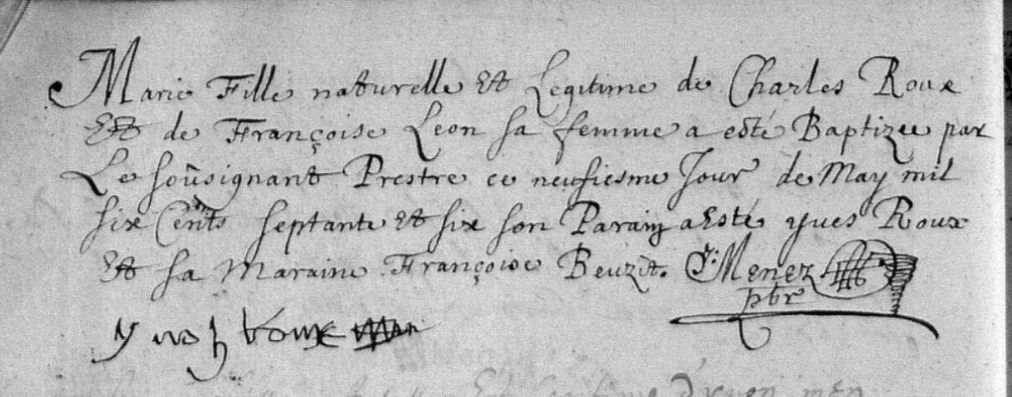 Marie Fille naturelle et Legitime de Charles Roux
Et de Françoise Leon sa femme a esté Baptizee par
Le soûsignant Prestre ce neufiesme Jour de May mil
six Cents septante et six son Parain a Esté yues Roux
Et sa Maraine Françoise Beuzit. J: Menez
pbr
yves roux